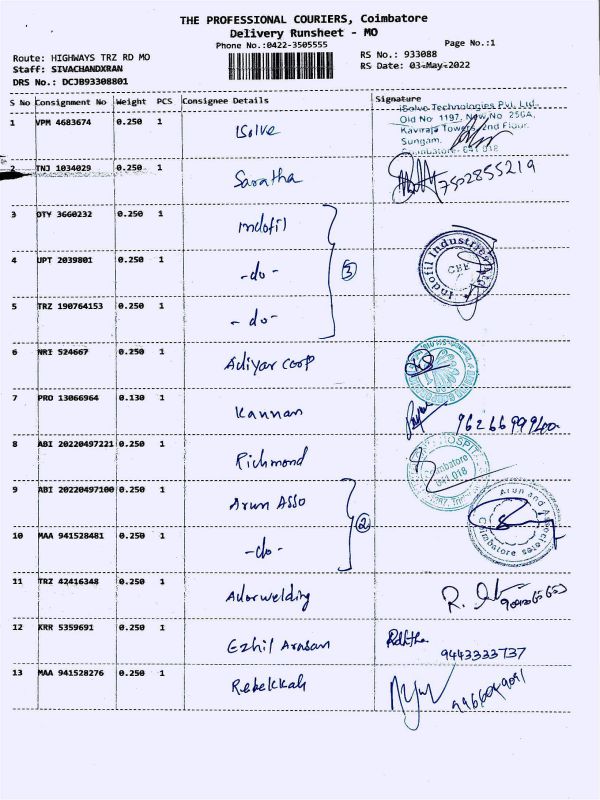 THE PROFESSIONAL COURIERS, Coimbatore
Delivery Runsheet - MO
Phone No.:0422-3505555
Page No.:1
Route: HIGHWAYS TRZ RD MO
RS No.: 933088
Staff: SIVACHANDXRAN
RS Date: 03-May-2022
DRS No.: DCJB93308801
S No Consignment No Weight PCS Consignee Details Signature
iSolve Technologies Pvt. Ltd.
Old No 1197, New No 256A,
Kaviraja Towers, 2nd Floor,
Sungam,
Coimbatore-641 018
1 VPM 4683674 0.250 1 iSolve
2 TNJ 1034029 0.250 1 Saratha 7502855219
3 OTY 3660232 0.250 1 Indofil
4 UPT 2039801 0.250 1 -do- 3 Indofil Industries Ltd CBE
5 TRZ 190764153 0.250 1 -do-
6 NRI 524667 0.250 1 Adiyar Coop
7 PRO 13066964 0.130 1 Kannan
8 ABI 20220497221 0.250 1 Richmond HOSPIT Coimbatore 641 018
9 ABI 20220497100 0.250 1 Arun Asso 2 Arun and Associates Coimbatore
10 MAA 941528481 0.250 1 -do-
11 TRZ 42416348 0.250 1 Adorwelding
12 KRR 5359691 0.250 1 Ezhil Arasan 9443333737
13 MAA 941528276 0.250 1 Rebekkah